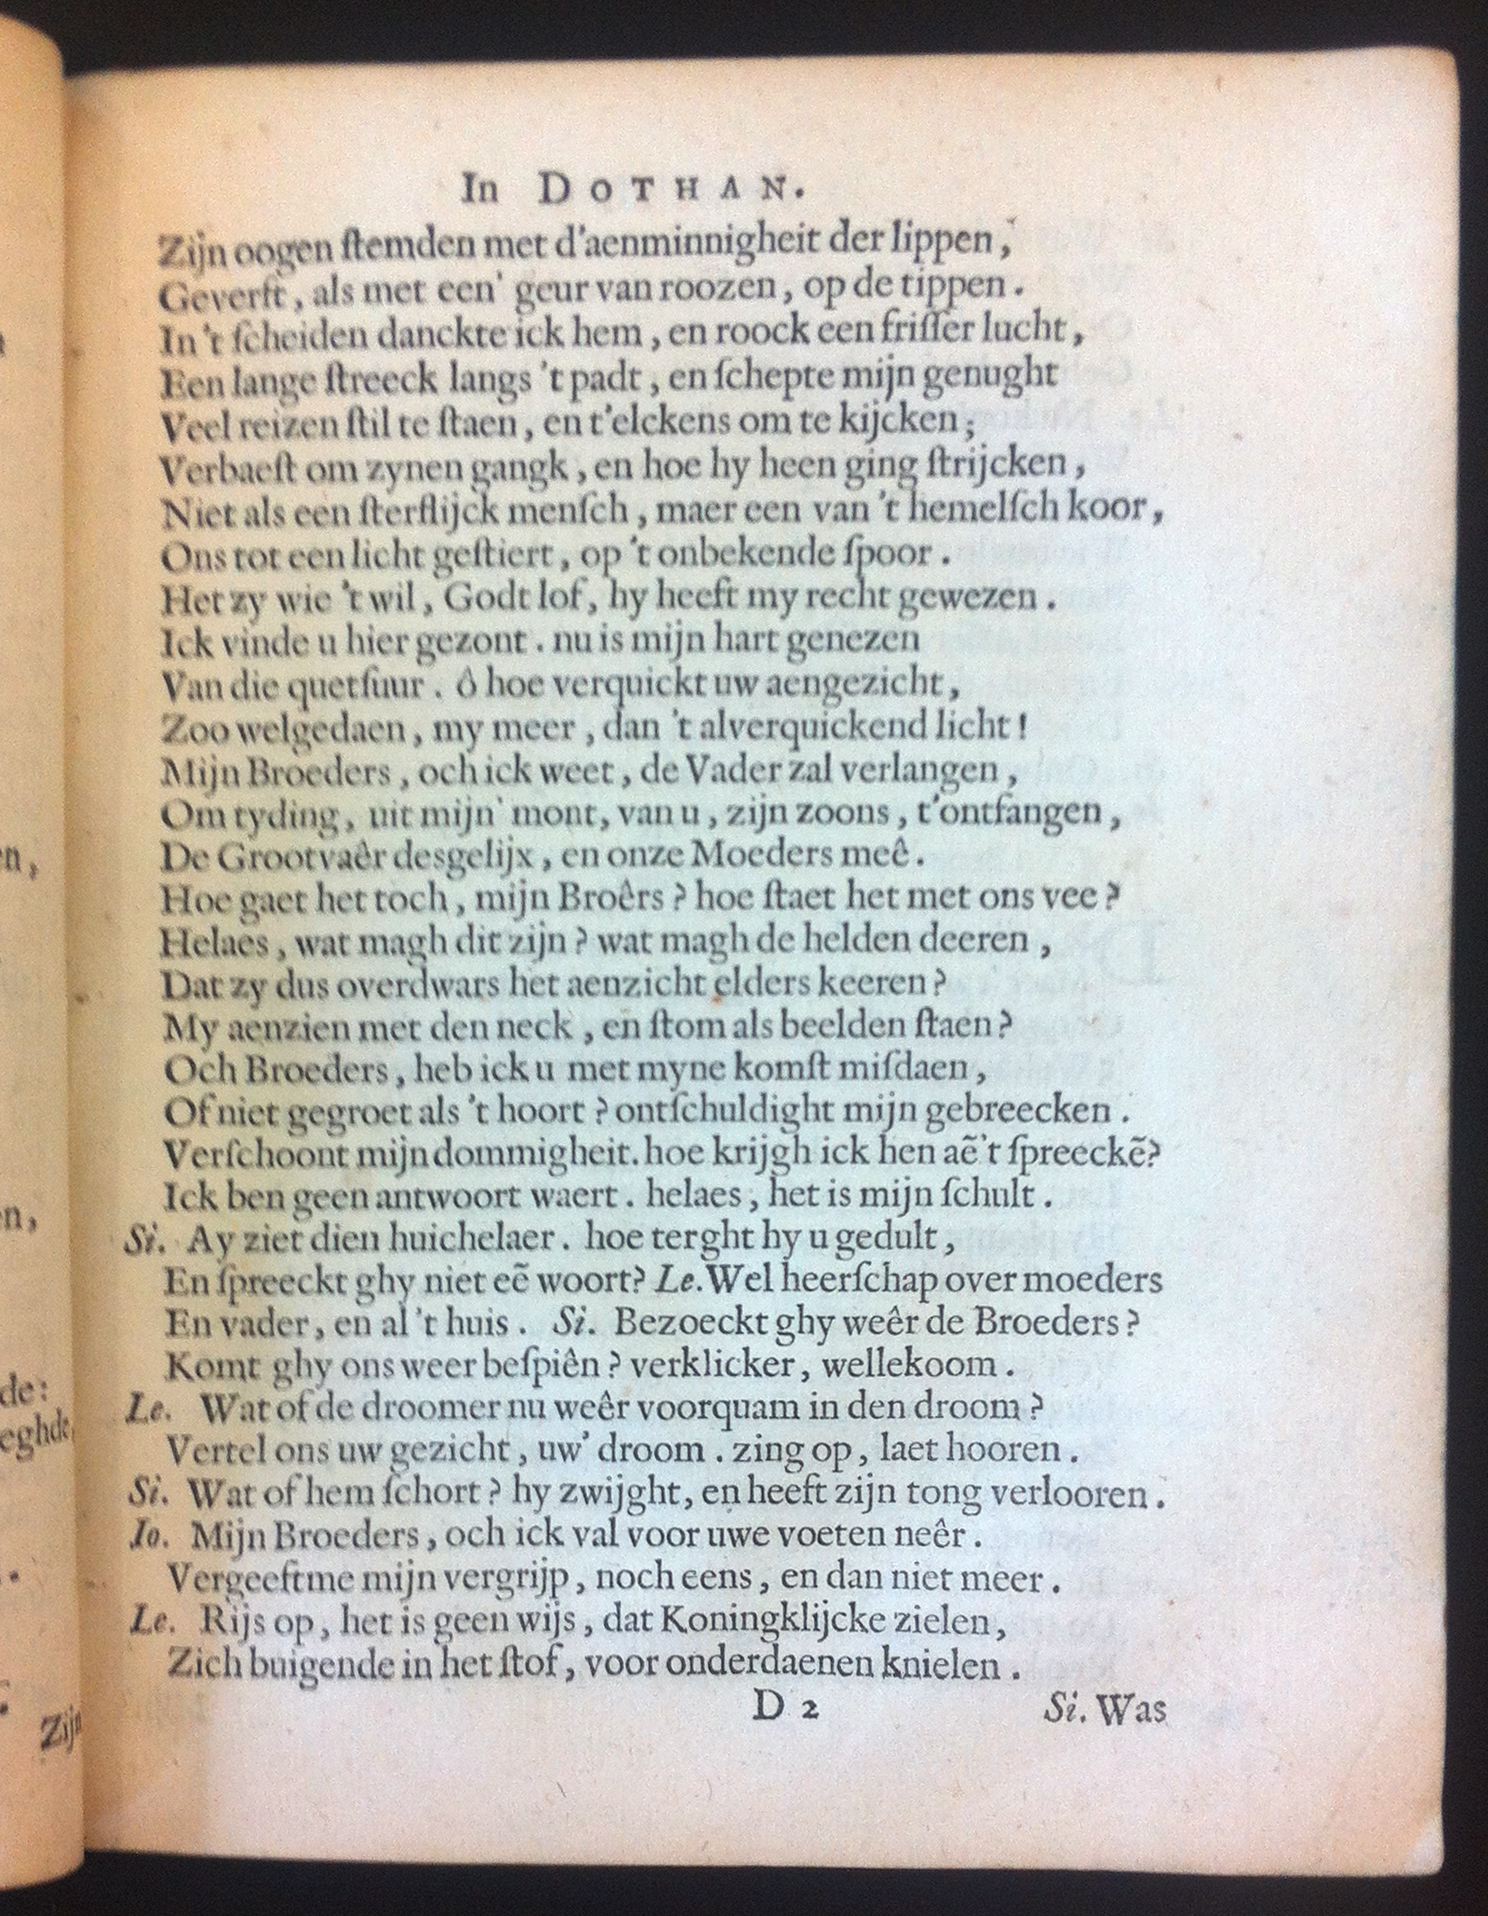 In DOTHAN.
Zijn oogen ſtemden met d'aenminnigheit der lippen,
Geverft, als met een' geur van roozen, op de tippen.
In 't ſcheiden danckte ick hem, en roock een friſſer lucht,
Een lange ſtreeck langs 't padt, en ſchepte mijn genught
Veel reizen ſtil te ſtaen, en t'elckens om te kijcken;
Verbaeſt om zynen gangk, en hoe hy heen ging ſtrijcken,
Niet als een ſterflijck menſch, maer een van 't hemelſch koor,
Ons tot een licht geſtiert, op 't onbekende ſpoor.
Het zy wie 't wil, Godt lof, hy heeft my recht gewezen.
Ick vinde u hier gezont. nu is mijn hart genezen
Van die quetſuur. ô hoe verquickt uw aengezicht,
Zoo welgedaen, my meer, dan 't alverquickend licht!
Mijn Broeders, och ick weet, de Vader zal verlangen,
Om tyding, uit mijn' mont, van u, zijn zoons, t'ontfangen,
De Grootvaêr desgelijx, en onze Moeders meê.
Hoe gaet het toch, mijn Broêrs? hoe ſtaet het met ons vee?
Helaes, wat magh dit zijn? wat magh de helden deeren,
Dat zy dus overdwars het aenzicht elders keeren?
My aenzien met den neck, en ſtom als beelden ſtaen?
Och Broeders, heb ick u met myne komſt miſdaen,
Of niet gegroet als 't hoort? ontſchuldight mijn gebreecken.
Verſchoont mijn dommigheit. hoe krijgh ick hen aẽ't ſpreeckẽ?
Ick ben geen antwoort waert. helaes, het is mijn ſchult.
Si. Ay ziet dien huichelaer. hoe terght hy u gedult,
En ſpreeckt ghy niet eẽ woort? Le. Wel heerſchap over moeders
En vader, en al 't huis. Si. Bezoeckt ghy weêr de Broeders?
Komt ghy ons weer beſpiên? verklicker, wellekoom.
Le. Wat of de droomer nu weêr voorquam in den droom?
Vertel ons uw gezicht, uw' droom. zing op, laet hooren.
Si. Wat of hem ſchort? hy zwijght, en heeft zijn tong verlooren.
Io. Mijn Broeders, och ick val voor uwe voeten neêr.
Vergeeft me mijn vergrijp, noch eens, en dan niet meer.
Le. Rijs op, het is geen wijs, dat Koningklijcke zielen,
Zich buigende in het ſtof, voor onderdaenen knielen.
D 2 Si. Was
en,
n,
de:
eghde
Zijn